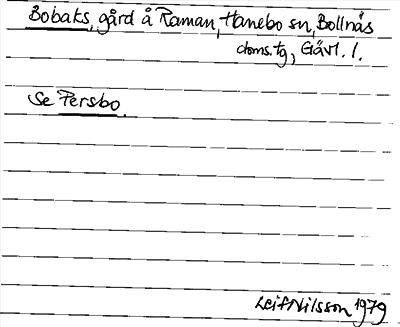 Bobaks, gård å Raman, Hanebo sn, Bollnäs
doms.tg, Gävl. l.
Se Persbo.
Leif Nilsson 1979